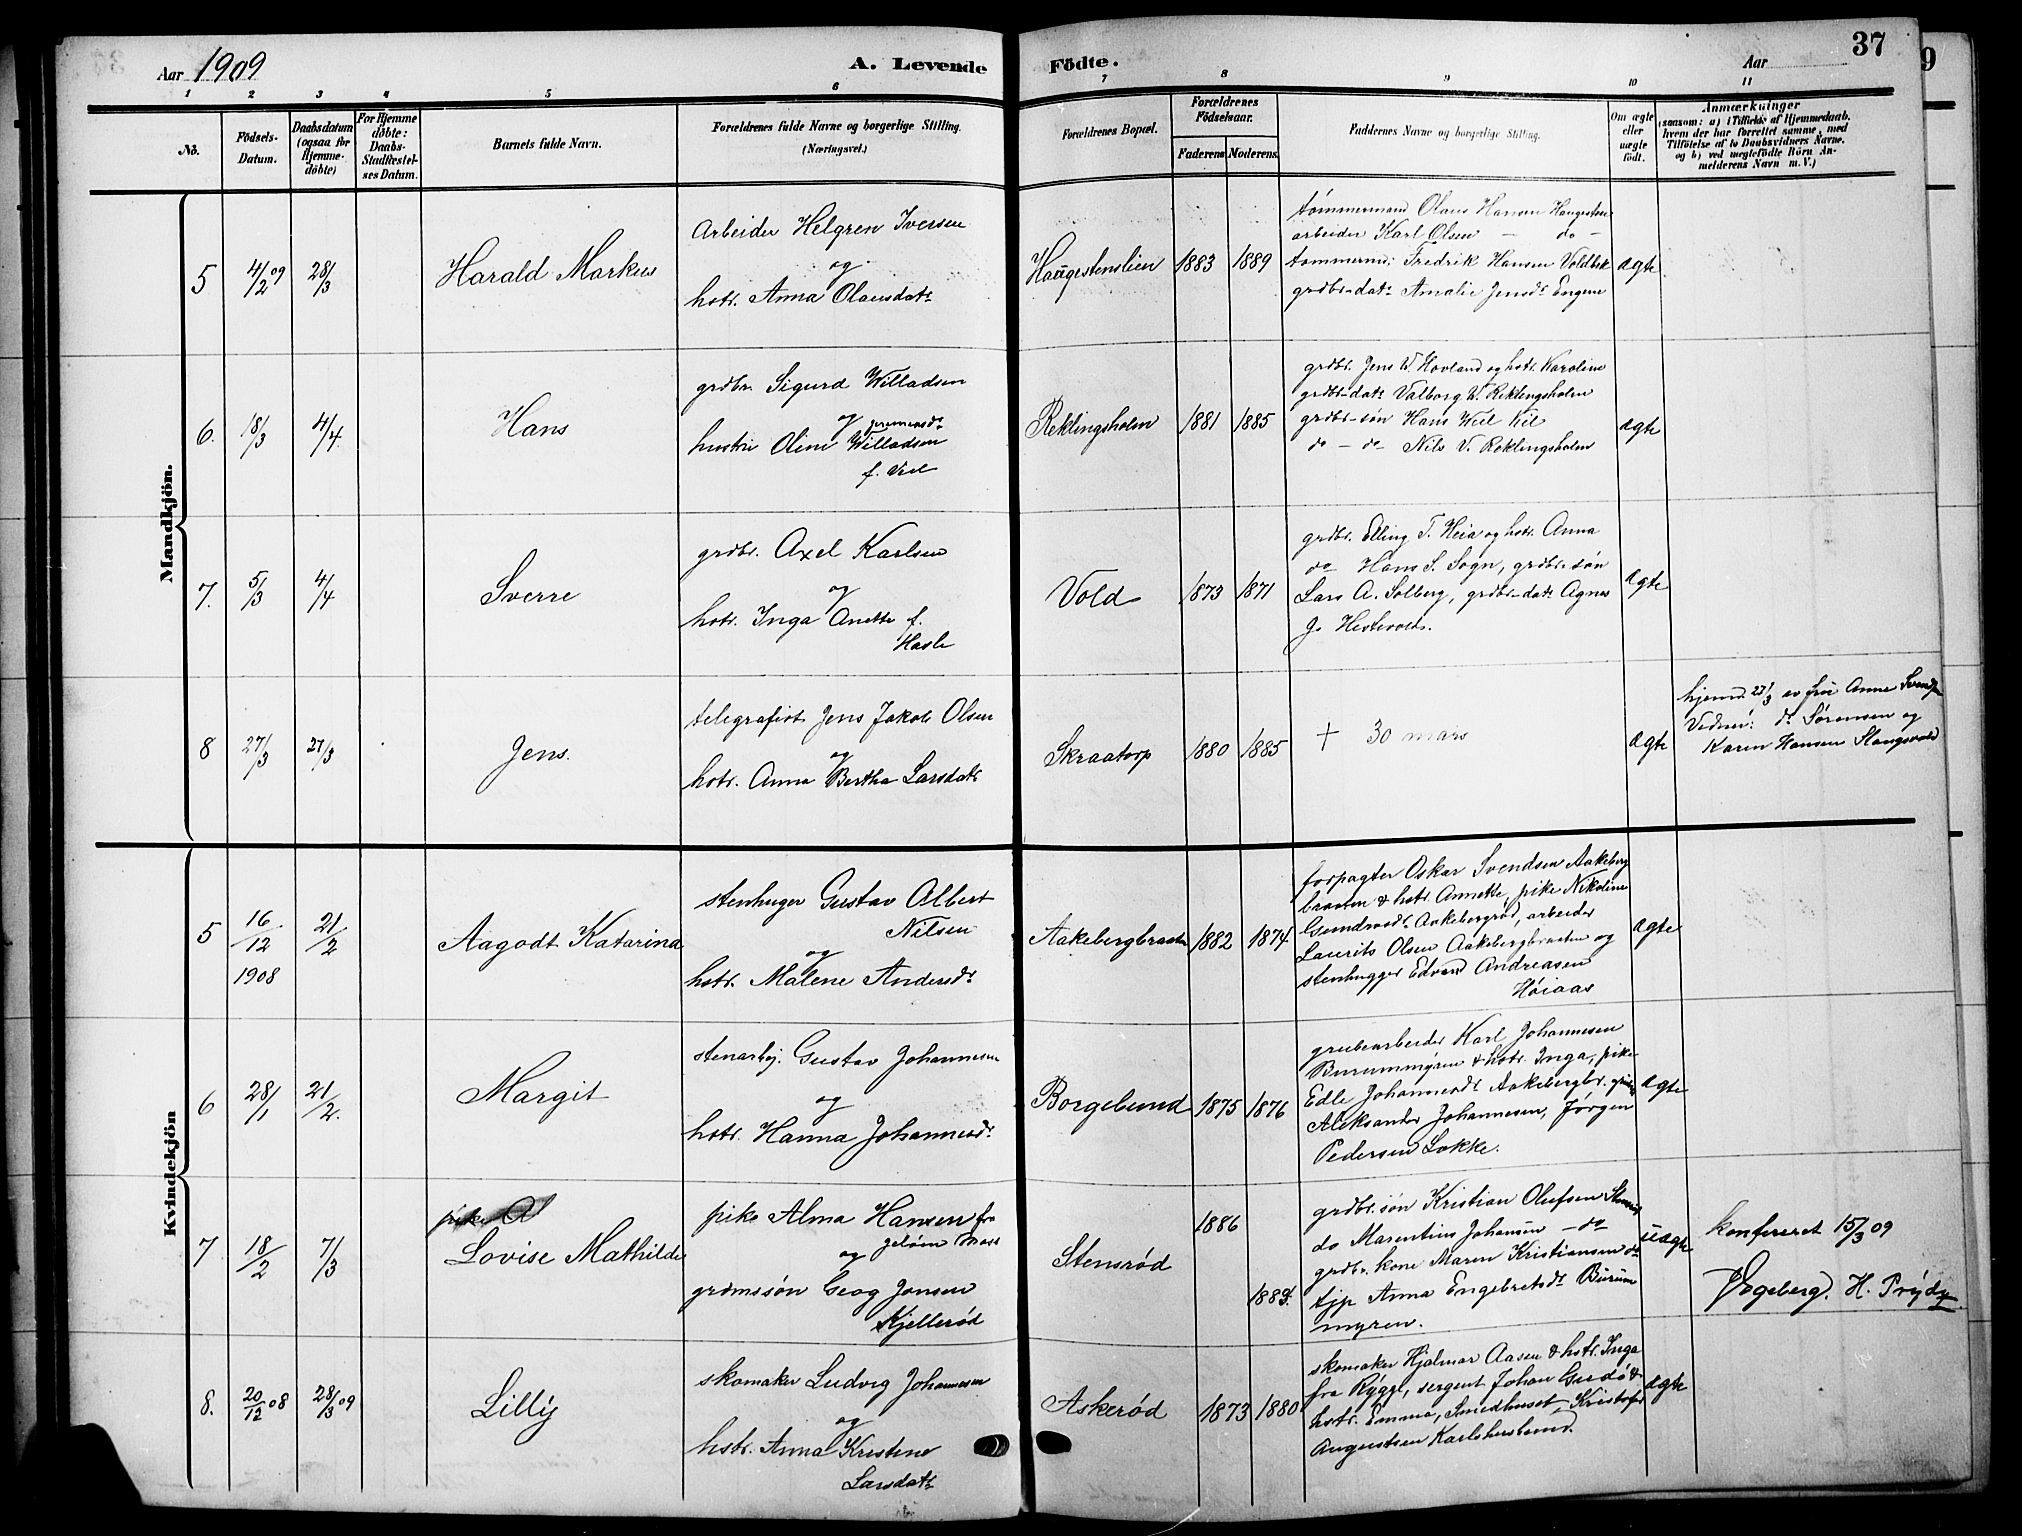 Aar 1909
A. Levende Födte.
Aar
37
9
1 2 3 4 5 6 7 8 9 10 11
No.
Födsels-
Datum.
Daabsdatum
(ogsaa for
Hjemme-
döbte)
For Hjemme
döbte:
Daabs-
Stadfestel-
ses Datum.
Barnets fulde Navn.
Forældrenes fulde Navne og borgerlige Stilling.
(Næringsvei.)
Forældrenes Bopæl.
Forældrenes
Födselsaar.
Faderens Moderens
Faddernes Navne og borgerlige Stilling.
Om ægte
eller
uægte
født.
Anmærkninger
(saasom: a) i Tilfælde af Hjemmedaab.
hvem der har forrettet samme, med
Tilföielse af to Daabsvidners Navne.
og b) ved uægtefödte Börn An-
melderens Navn m.V.)
Mandkjön.
5
4/2 09
28/3
Harald Markus
Arbeider Helgren Iversen
og
hstr. Anna Olausdatr
Haugestenslien
1883
1889
tómmermand Olaus Hansen Haugesten
arbeider Karl Olsen — do —
tømmerm: Fredrik Hansen Voldbæk
grdbr-datr Amalie Jensdr Engene
ægte
6.
18/3
4/4.
Hans
grdbr. Sigurd Willadsen
og
hustru Oline Willadsen
f. Veel
Reklingsholm
1881
1885
grdbr. Jens W. Hovland og hstr. Karoline
grdbr-datr Valborg W. Reklingsholm
grdbr-søn Hans Weel Kil
do — do Nils V. Reklingsholm
ægte
7.
5/3
4/4
Sverre
grdbr. Axel Karlsen
og
hstr. Inga Anette f.
Hasle
Vold
1873
1871
grdbr. Elling T. Heia og hstr. Anna
do Hans S. Sogn, grdbr-søn
Lars A. Solberg, grdbr-datr Agnes
J. Hestevold.
ægte
8
27/3
27/3
Jens.
telegrafist Jens Jakob Olsen
og
hstr. Anna Bertha Larsdatr
Skraatorp
1880
1885
† 30 mars
ægte
hjemd. 27/3 av fru Anne
Vidner: dr Sørensen og
Karen Hansen Slangsvold
Kvindekjön
5
16/12
1908
21/2
Aagodt Katarina
stenhuger Gustav Albert
Nilsen
og
hstr. Malene Andersdr
Aakebergbraaten
1882
1874
forpagter Oskar Svendsen Aakeberg
braaten & hstr. Annette, pike Nikoline
Gundersdr Aakebergrød, arbeider
Laurits Olsen Aakebergbraaten og
stenhugger Edvard Andreasen
Høiaas
ægte
6
28/1
21/2.
Margit
stenarbj. Gustav Johannesen
og
hstr. Hanna Johannesdr
Borgelund
1875
1876
grubearbeider Karl Johannesen
& hstr. Inga, pike
Edle Johannesdr Aakebergbr.
Aleksander Johannesen, Jørgen
Pedersen Løkke.
ægte
7
18/2
7/3
pike Al
Lovise Mathilde
pike Alma Hansen fra
Jeløen Moss
og
grdmssön Georg Jensen
Kjellerød
Stensrød
1886
grdbr. søn Kristian Olufsen
do Marentius Johansen — do
grdbr. kone Maren Kristiansen do
tjp Anna Engebretsdr Burum
myren.
uægte
konfereret 15/3 09
Egeberg. H. Prydz
8.
20/12 08
28/3 09
Lilly
skomaker Ludvig Johannesen
og
hstr. Anna Kristine
Larsdatr
Askerød
1873
1880
skomaker Hjalmar Aasen & hstr. Inga
fra Rygge, sergent Johan &
hstr. Emma, Smedhuset, Kristofer
Augustsen Karlshuslund.
ægte